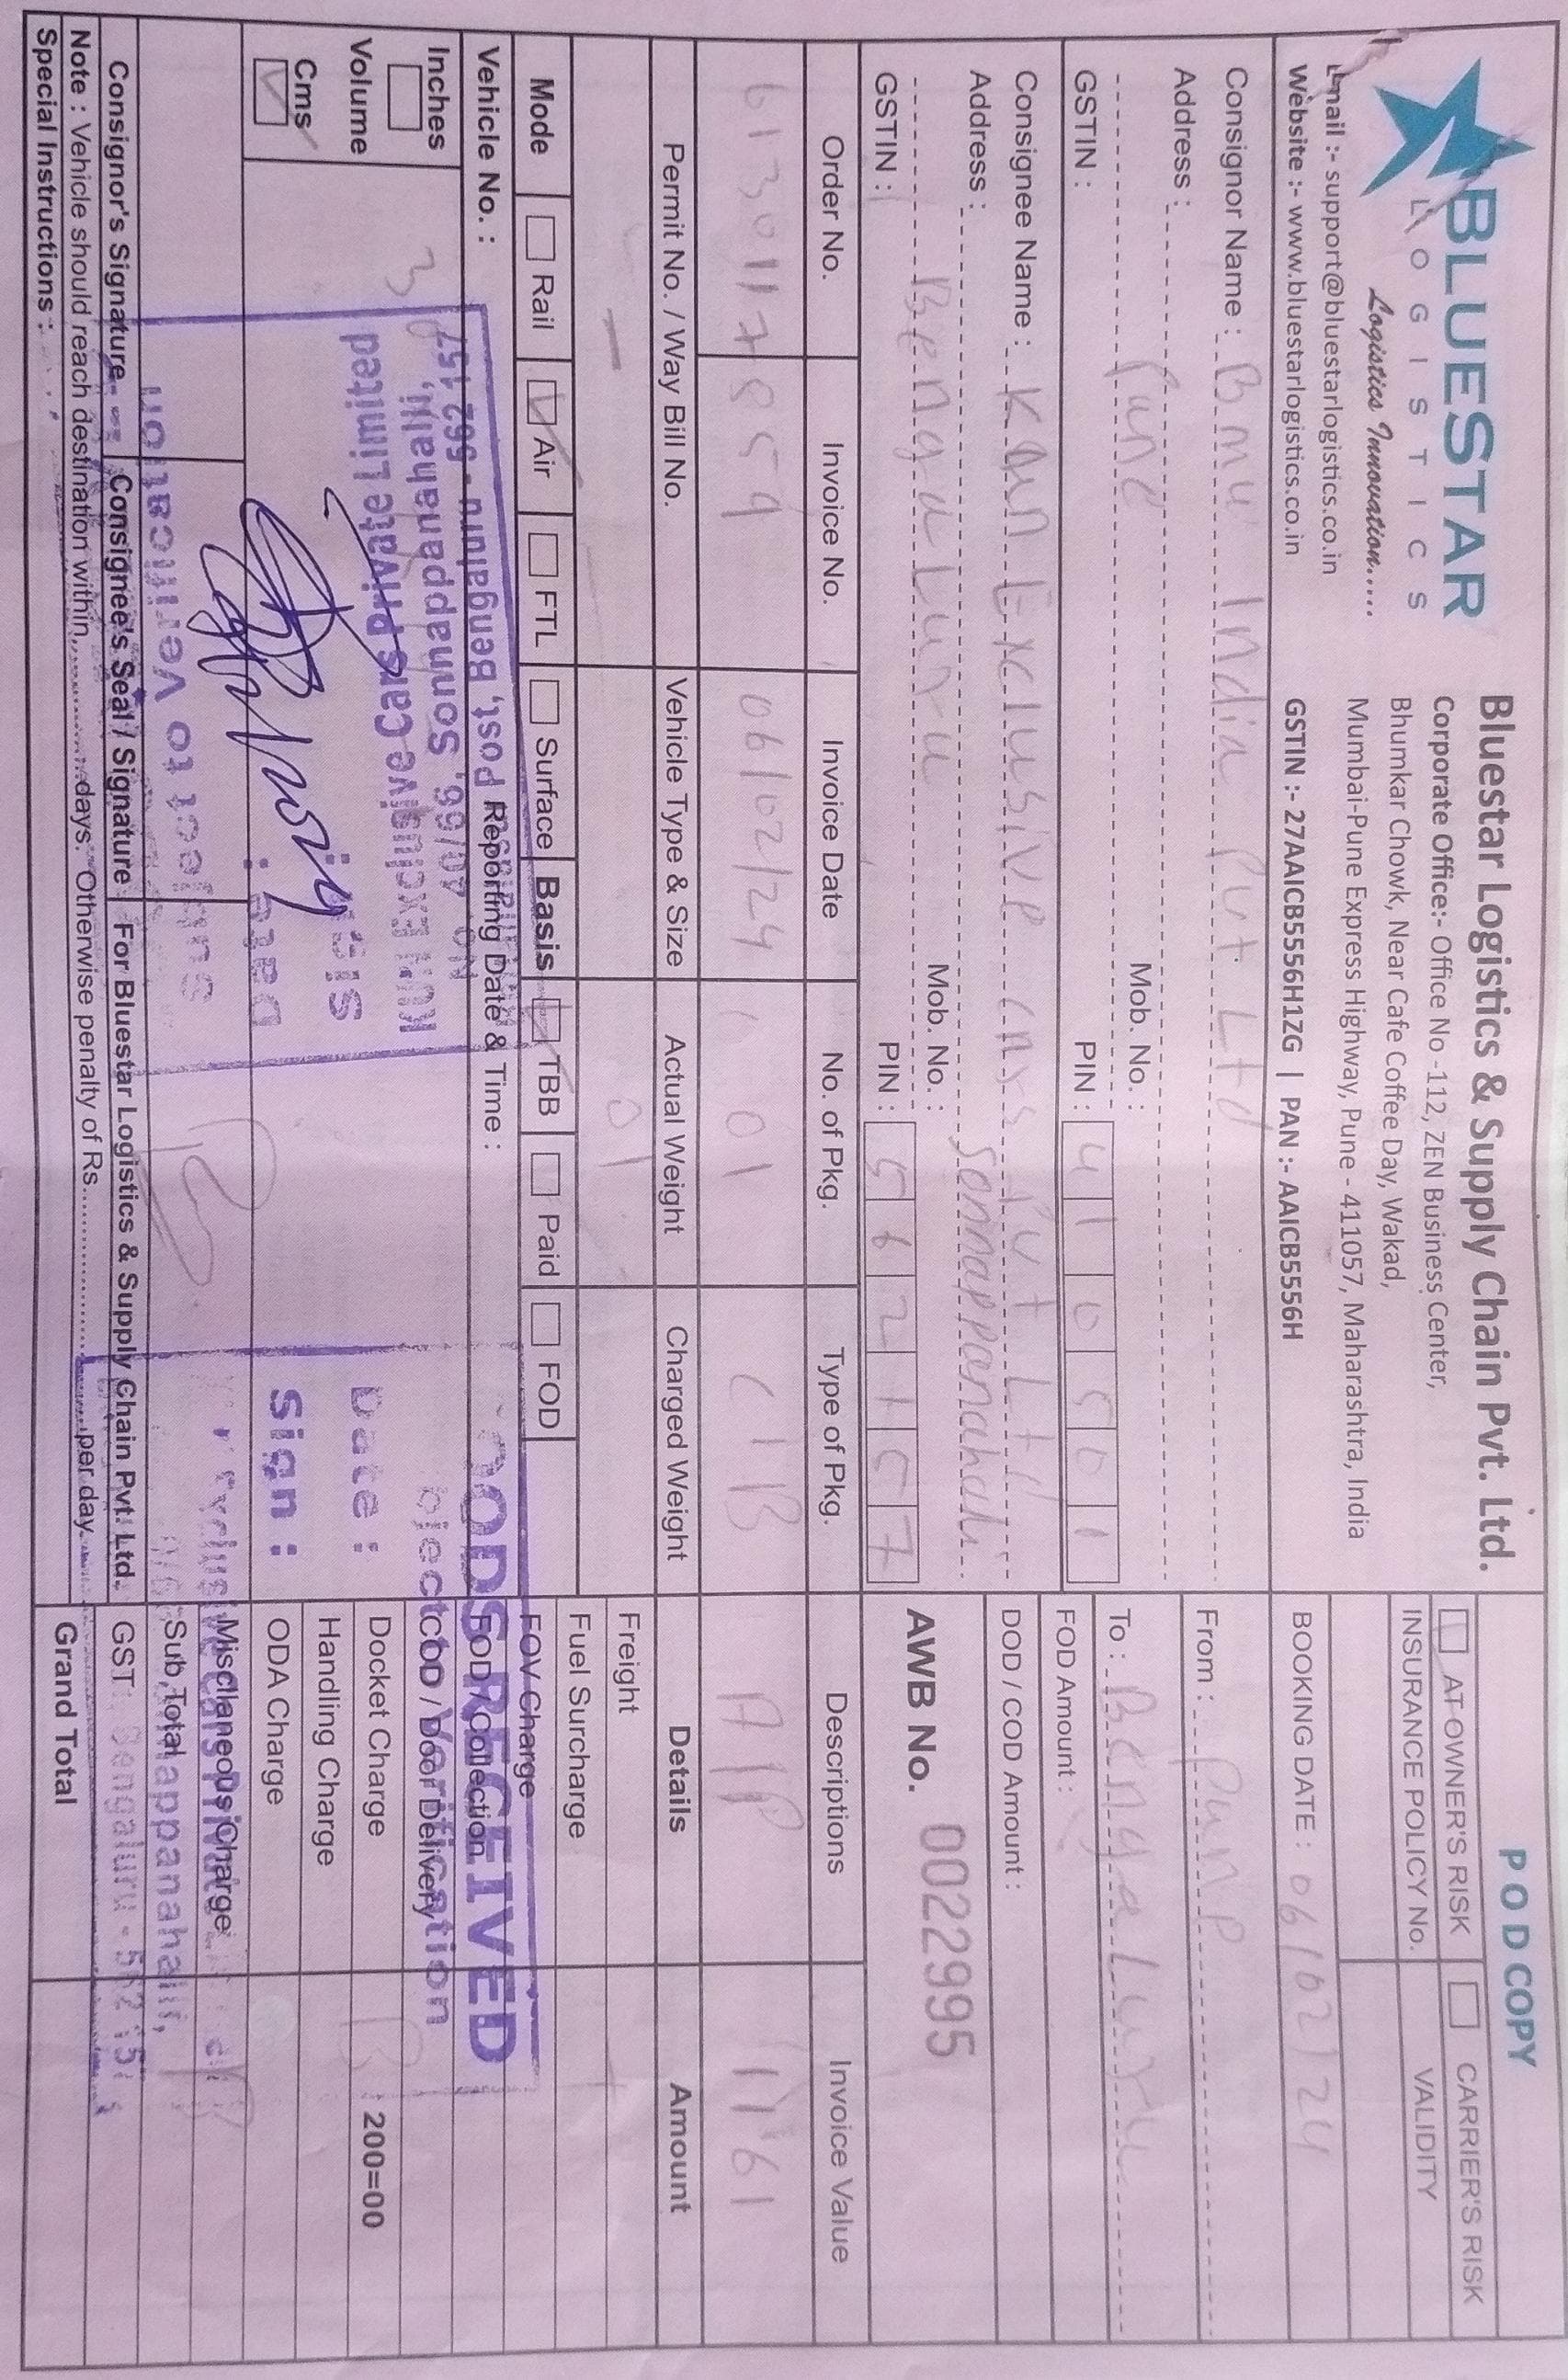 BLUESTAR
LOGISTICS
Logistics Innovation.....
Email :- support@bluestarlogistics.co.in
Website :- www.bluestarlogistics.co.in
Bluestar Logistics & Supply Chain Pvt. Ltd.
Corporate Office:- Office No -112, ZEN Business Center,
Bhumkar Chowk, Near Cafe Coffee Day, Wakad,
Mumbai-Pune Express Highway, Pune - 411057, Maharashtra, India
GSTIN :- 27AAICB5556H1ZG | PAN :- AAICB5556H
POD COPY
AT OWNER'S RISK CARRIER'S RISK
INSURANCE POLICY No. VALIDITY
BOOKING DATE : 06/02/24
Consignor Name : Bmw India Pvt Ltd
Address :
Pune Mob. No. :
GSTIN : PIN : 410501
From : Pune
To : Bengaluru
FOD Amount :
DOD / COD Amount :
Consignee Name : KUN Exclusive cars Pvt Ltd
Address : Sonnappanahalli
Bengaluru Mob. No. :
GSTIN : PIN : 562157
AWB No. 0022995
Order No. Invoice No. Invoice Date No. of Pkg. Type of Pkg. Descriptions Invoice Value
6130117859 06/02/24 01 C'B A/P 11'61
Permit No. / Way Bill No. Vehicle Type & Size Actual Weight Charged Weight Details Amount
— 01
Freight
Fuel Surcharge
Mode Rail Air FTL Surface Basis TBB Paid FOD
FOV Charge
Vehicle No. : Reporting Date & Time :
FOD / Collection
COD / Door Delivery
Docket Charge 200=00
Handling Charge
ODA Charge
Miscllaneous Charge
Sub Total
GST
Grand Total
Inches
Volume
Cms
Subject to Verification
Date :
Sign :
KUN Exclusive Cars Private Limited
No. 40/66, Sonnappanahalli,
Post, Bengaluru - 562 157
GOODS RECEIVED
Subject to Verification
Date :
Sign :
Exclusive Cars Private
Sonnappanahalli,
Bengaluru - 562 157
Consignor's Signature Consignee's Seal / Signature For Bluestar Logistics & Supply Chain Pvt. Ltd.
Note : Vehicle should reach destination within...............days. Otherwise penalty of Rs...............................per day.
Special Instructions :